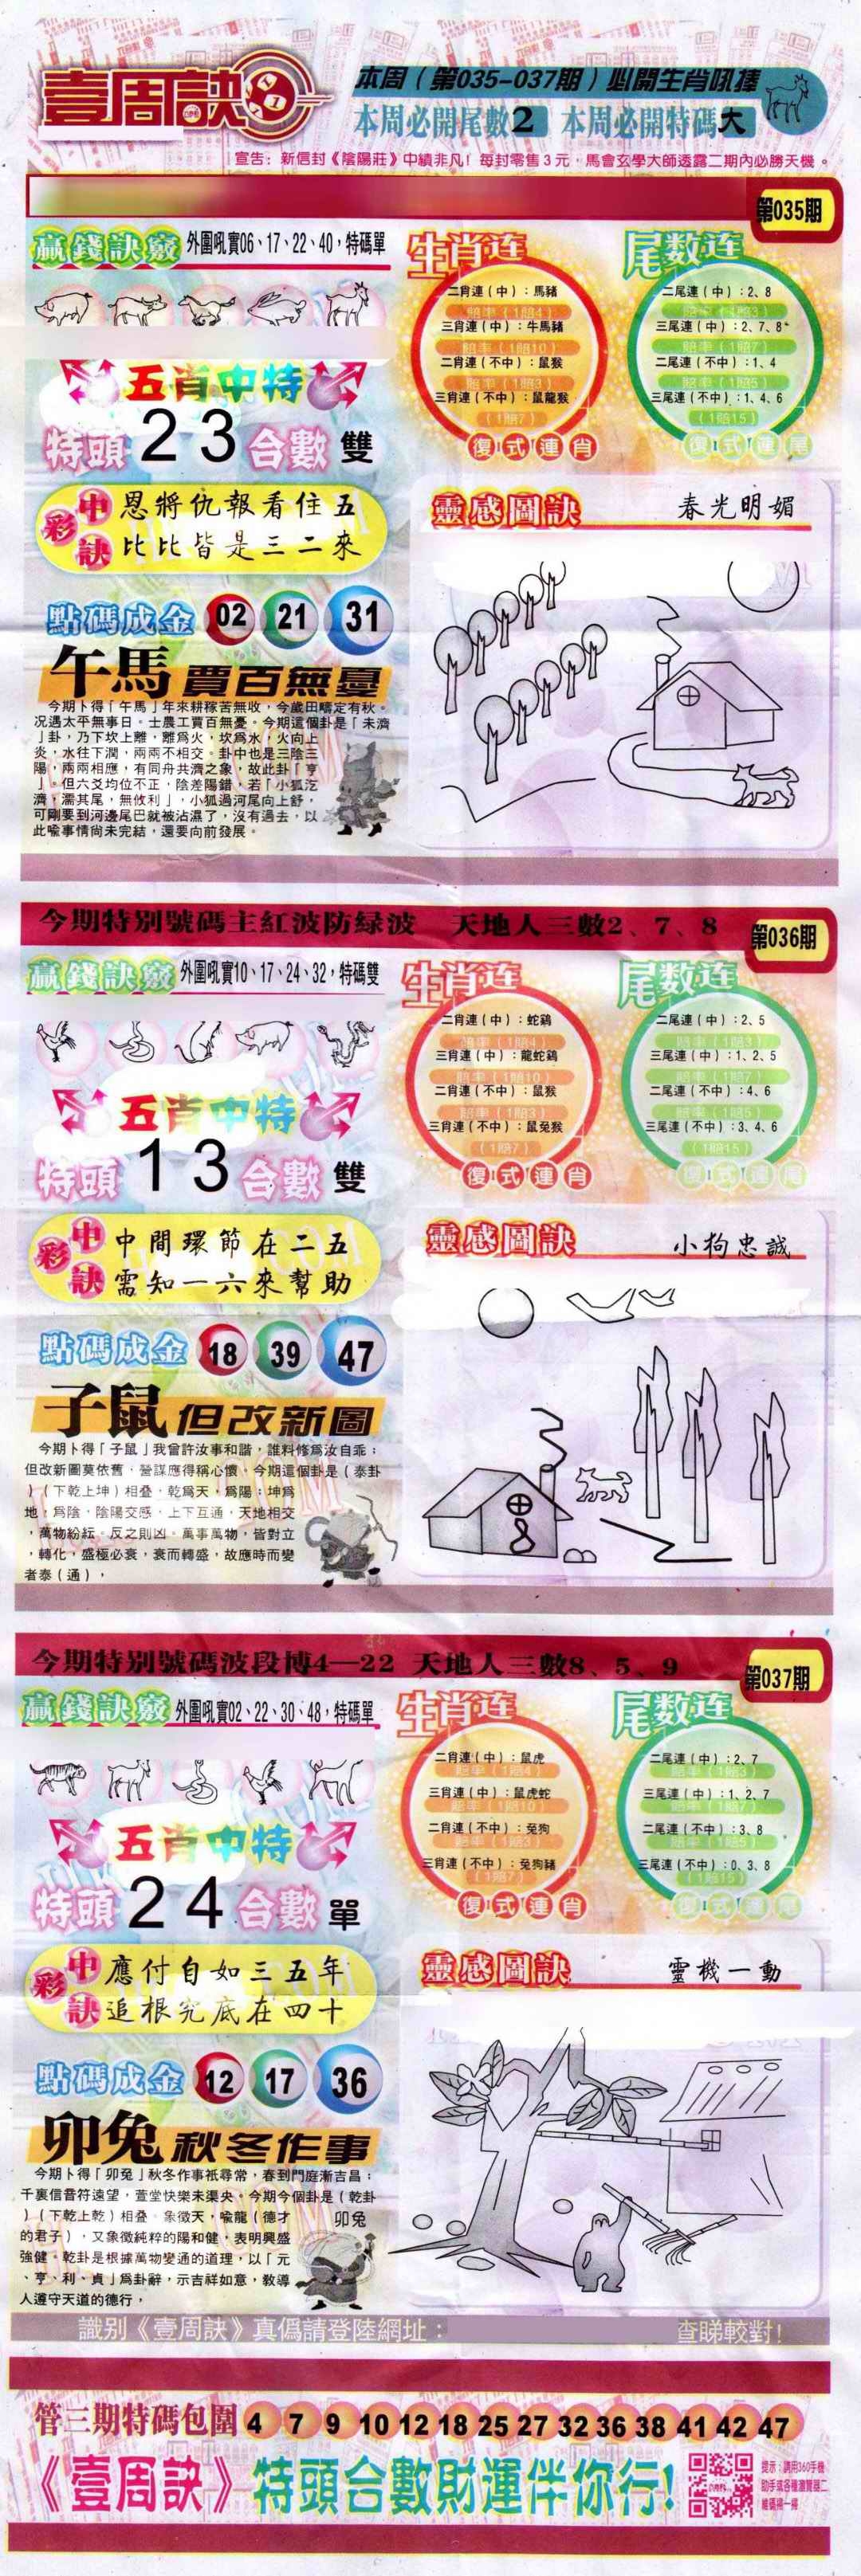 壹周訣
本周（第035-037期）必開生肖吼㨗
本周必開尾數2 本周必開特碼大
宣告：新信封《陰陽莊》中績非凡！每封零售3元，馬會玄學大師透露二期內必勝天機。
第035期
贏錢訣竅 外圍吼實06、17、22、40，特碼單
五肖中特
特頭 2 3 合數 雙
中彩訣
恩將仇報看住五
比比皆是三二來
點碼成金 02 21 31
午馬 賈百無憂
今期卜得「午馬」年來耕稼苦無收，今歲田疇定有秋。
況遇太平無事日。士農工賈百無憂。今期這個卦是「未濟
」卦，乃下坎上離，離爲火，坎爲水，火向上
炎，水往下潤，兩兩不相交。卦中也是三陰三
陽，兩兩相應，有同舟共濟之象，故此卦「亨
」。但六爻均位不正，陰差陽錯，若「小狐汔
濟，濡其尾，無攸利」，小狐過河尾向上舒，
可剛要到河邊尾巴就被沾濕了，沒有過去，以
此喻事情尚未完結，還要向前發展。
生肖连
二肖連（中）：馬豬
賠率（1賠4）
三肖連（中）：牛馬豬
賠率（1賠10）
二肖連（不中）：鼠猴
賠率（1賠3）
三肖連（不中）：鼠龍猴
（1賠7）
復式連肖
尾数连
二尾連（中）：2、8
賠率（1賠3）
三尾連（中）：2、7、8
賠率（1賠7）
二尾連（不中）：1、4
賠率（1賠5）
三尾連（不中）：1、4、6
（1賠15）
復式連尾
靈感圖訣 春光明媚
今期特別號碼主紅波防緑波 天地人三數2、7、8
第036期
贏錢訣竅 外圍吼實10、17、24、32，特碼雙
五肖中特
特頭 1 3 合數 雙
中彩訣
中間環節在二五
需知一六來幫助
點碼成金 18 39 47
子鼠 但改新圖
今期卜得「子鼠」我曾許汝事和諧，誰料修爲汝自乖；
但改新圖莫依舊，營謀應得稱心懷。今期這個卦是（泰卦
）（下乾上坤）相叠，乾爲天，爲陽；坤爲
地，爲陰，陰陽交感，上下互通，天地相交
，萬物紛紜。反之則凶。萬事萬物，皆對立
，轉化，盛極必衰，衰而轉盛，故應時而變
者泰（通），
生肖连
二肖連（中）：蛇鷄
賠率（1賠4）
三肖連（中）：龍蛇鷄
賠率（1賠10）
二肖連（不中）：鼠猴
賠率（1賠3）
三肖連（不中）：鼠兔猴
（1賠7）
復式連肖
尾数连
二尾連（中）：2、5
賠率（1賠3）
三尾連（中）：1、2、5
賠率（1賠7）
二尾連（不中）：4、6
賠率（1賠5）
三尾連（不中）：3、4、6
（1賠15）
復式連尾
靈感圖訣 小狗忠誠
今期特別號碼波段博4—22 天地人三數8、5、9
第037期
贏錢訣竅 外圍吼實02、22、30、48，特碼單
五肖中特
特頭 2 4 合數 單
中彩訣
應付自如三五年
追根究底在四十
點碼成金 12 17 36
卯兔 秋冬作事
今期卜得「卯兔」秋冬作事衹尋常，春到門庭漸吉昌；
千裏信音符遠望，萱堂快樂未渠央。今期今個卦是（乾卦
）（下乾上乾）相叠。象徵天，喻龍（德才
的君子），又象徵純粹的陽和健，表明興盛
強健。乾卦是根據萬物變通的道理，以「元
、亨、利、貞」爲卦辭，示吉祥如意，教導
人遵守天道的德行，
卯兔
生肖连
二肖連（中）：鼠虎
賠率（1賠4）
三肖連（中）：鼠虎蛇
賠率（1賠10）
二肖連（不中）：兔狗
賠率（1賠3）
三肖連（不中）：兔狗豬
（1賠7）
復式連肖
尾数连
二尾連（中）：2、7
賠率（1賠3）
三尾連（中）：1、2、7
賠率（1賠7）
二尾連（不中）：3、8
賠率（1賠5）
三尾連（不中）：0、3、8
（1賠15）
復式連尾
靈感圖訣 靈機一動
識别《壹周訣》真僞請登陸網址： 查睇較對！
管三期特碼包圍 4 7 9 10 12 18 25 27 32 36 38 41 42 47
《壹周訣》特頭合數財運伴你行！
提示：請用360手機
助手或各種瀏覽器二
維碼掃一掃